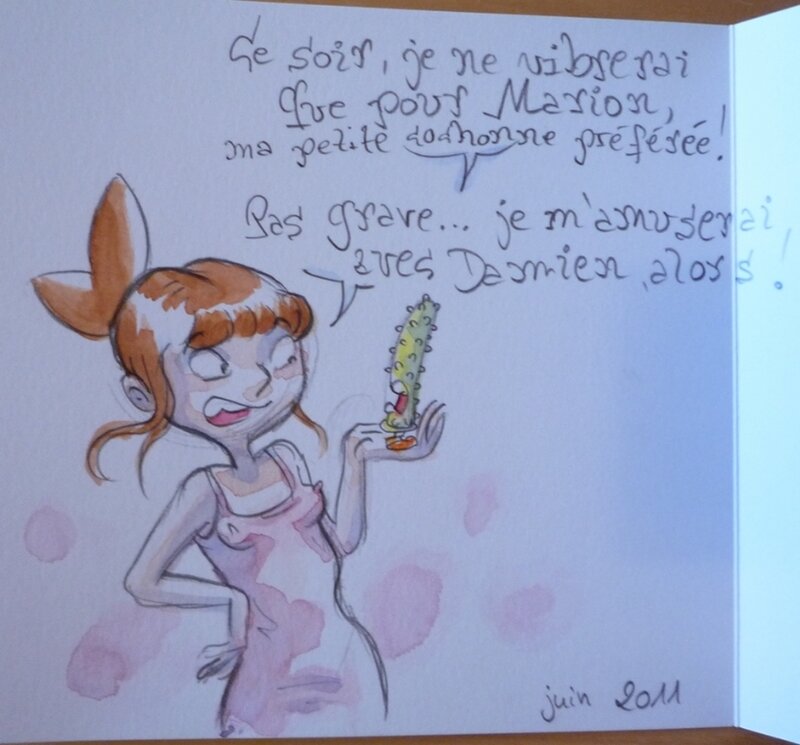 Ce soir, je ne vibrerai
que pour Marion,
ma petite cochonne préférée!
Pas grave... je m'amuserai
avec Damien, alors!
juin 2011